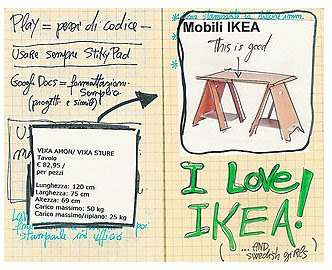 Play = pezzi di codice -
Usare sempre StikyPad
Google Docs = formattazioni
Semplici
(progetti e simili)
VIKA AMON/ VIKA STURE
Tavolo
€ 82,95 /
per pezzi
Lunghezza: 120 cm
Larghezza: 75 cm
Altezza: 69 cm
Carico massimo: 50 kg
Carico massimo/ripiano: 25 kg
per
stamparle in ufficio
Mobili IKEA
This is good
I Love
IKEA!
(...AND
swedish girls)